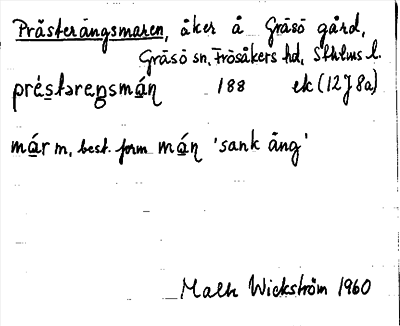 Prästerängsmaren, åker å Gräsö gård,
Gräsö sn, Frösåkers hd, Sthlms l.
préstəreŋsmáṇ 188 ek (12J8a)
már m, best. form máṇ 'sank äng'
Wickström 1960